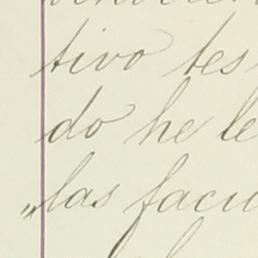 tivo tes
do he le
„las facu